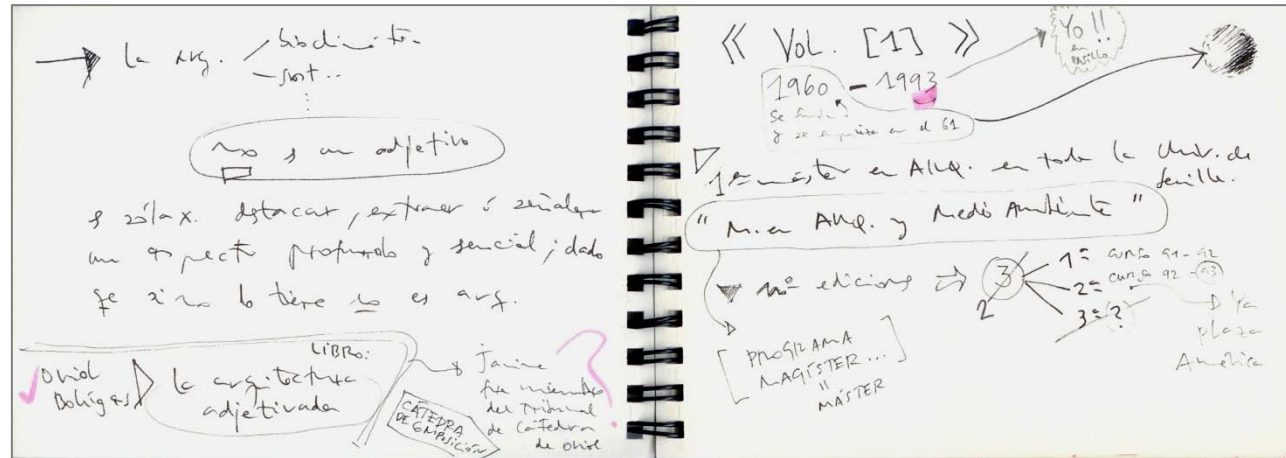 la arq.
- sost..
no es un adjetivo
es sólo x. destacar, extraer ó señalar
un aspecto profundo y sencial; dado
qe si no lo tiere no es arq.
LIBRO:
Oriol
Bohigas
la arquitectura
adjetivada
Janine
fue miembro
del Tribunal
de Cátedra
de Oriol
?
CÁTEDRA
DE COMPOSICIÓN
《 Vol. [1] 》
Yo!!
en
PASILLO
1960 - 1993
Se funda
y se en el 61
1er máster en ARQ. en toda la Univ. de
Sevilla.
" M. en ARQ. y Medio Ambiente "
nº edicions ⇒ 3
2
1ª curso 91-92
2ª curso 92-93
3ª (?)
Ya
plaza
América
[ PROGRAMA
MAGÍSTER... ]
"
MÁSTER